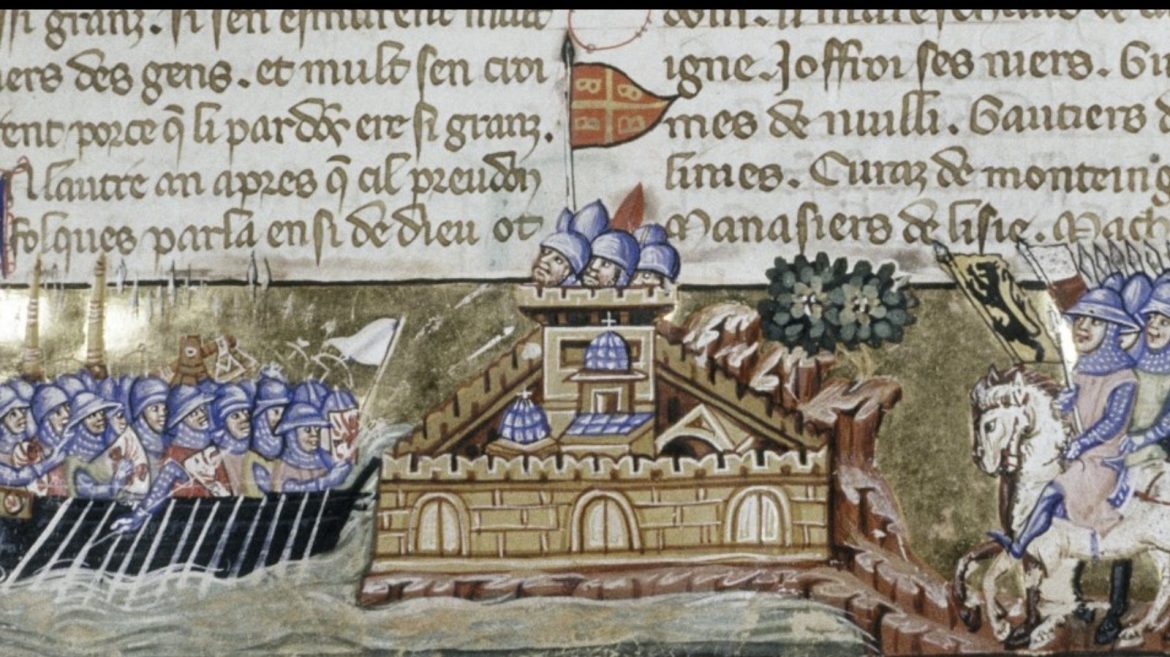 si granz. si sen esmurent mult
iers des gens. et mult sen croi
rent porce q̃ li pardõs ere si granz.
A lautre an apres q̃ cil preudõ
folques parla ensi de dieu ot
igne. Joffroi ses niers. Gui
mes de nuilli. Gautiers d
limes. Curaz de monteing
Manasiers de lisle. Mach